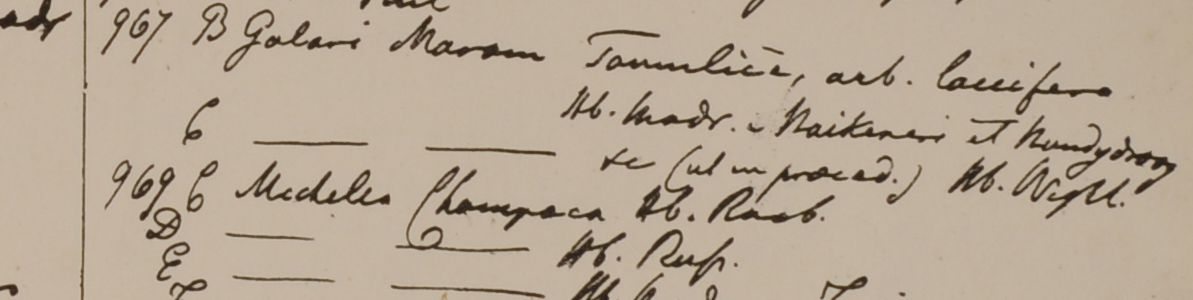 967 B Golari Maram Tamulicè, arb. laccifera
Hb. Madr. Naikeneri et Nundydroog
C — — &c (ut in praeced.) Hb. Wight.
969 C Michelia Champaca Hb. Roxb.
D — — Hb. Russ.
E — —